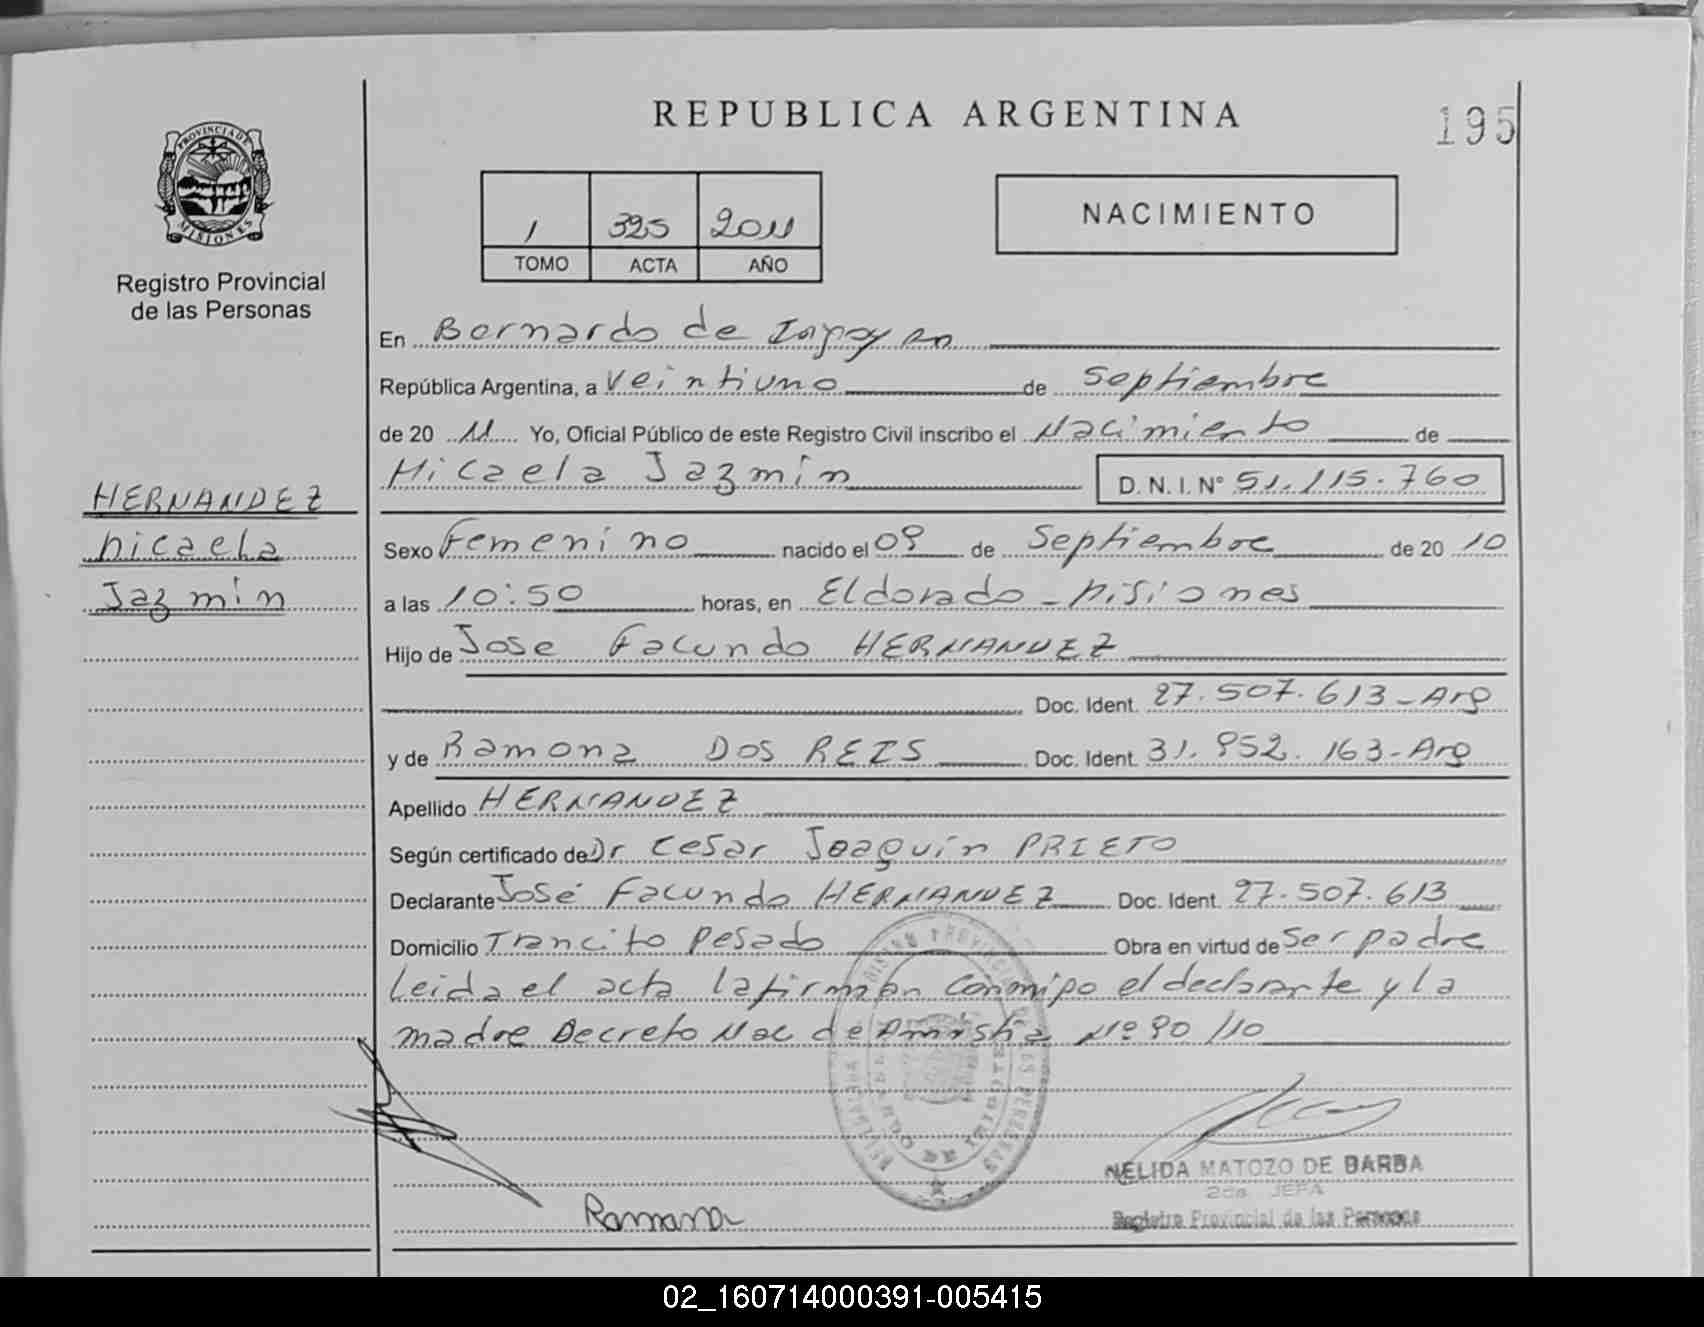 REPUBLICA ARGENTINA
195
PROVINCIA DE
MISIONES
Registro Provincial
de las Personas
1 325 2011
TOMO ACTA AÑO
NACIMIENTO
En Bernardo de Irigoyen
República Argentina, a Veintiuno de Septiembre
de 20 11 Yo, Oficial Público de este Registro Civil inscribo el Nacimiento de
Micaela Jazmín D. N. I. N° 51.115.760
HERNANDEZ
Micaela
Jazmín
Sexo Femenino nacido el 09 de Septiembre de 20 10
a las 10:50 horas, en Eldorado - Misiones
Hijo de Jose Facundo HERNANDEZ
Doc. Ident. 27.507.613-Arg
y de Ramona DOS REIS Doc. Ident. 31.952.163-Arg
Apellido HERNANDEZ
Según certificado de Dr Cesar Joaquín PRIETO
Declarante José Facundo HERNANDEZ Doc. Ident. 27.507.613
Domicilio Trancito Pesado Obra en virtud de Ser padre
Leida el acta la firman conmigo el declarante y la
madre Decreto Nac de Amnistia Nº 90/10
NELIDA MATOZO DE BARBA
2da. JEFA
Ramona
Registro Provincial de las Personas
02_160714000391-005415